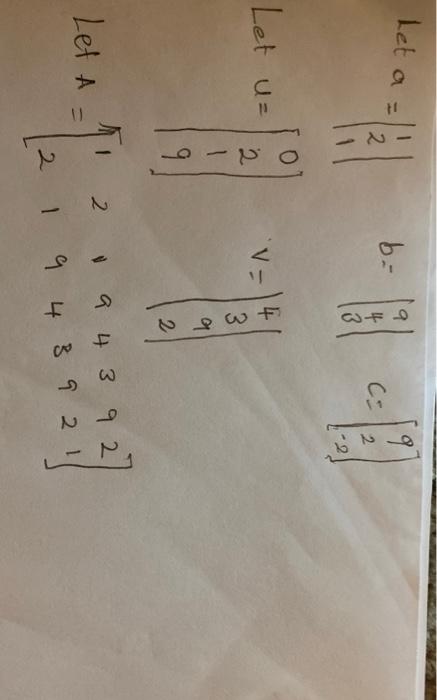 Let a = [1 2 1] b = [9 4 3] c = [9 2 -2]
Let u = [0 2 1 9] v = [4 3 9 2]
Let A = [1 2 1 9 4 3 9 2
2 1 9 4 3 9 2 1]